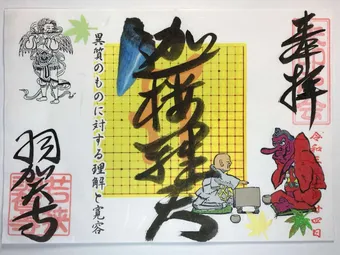 奉拝
令和三
四日
迦楼羅天
異質のものに対する理解と寛容
羽賀寺